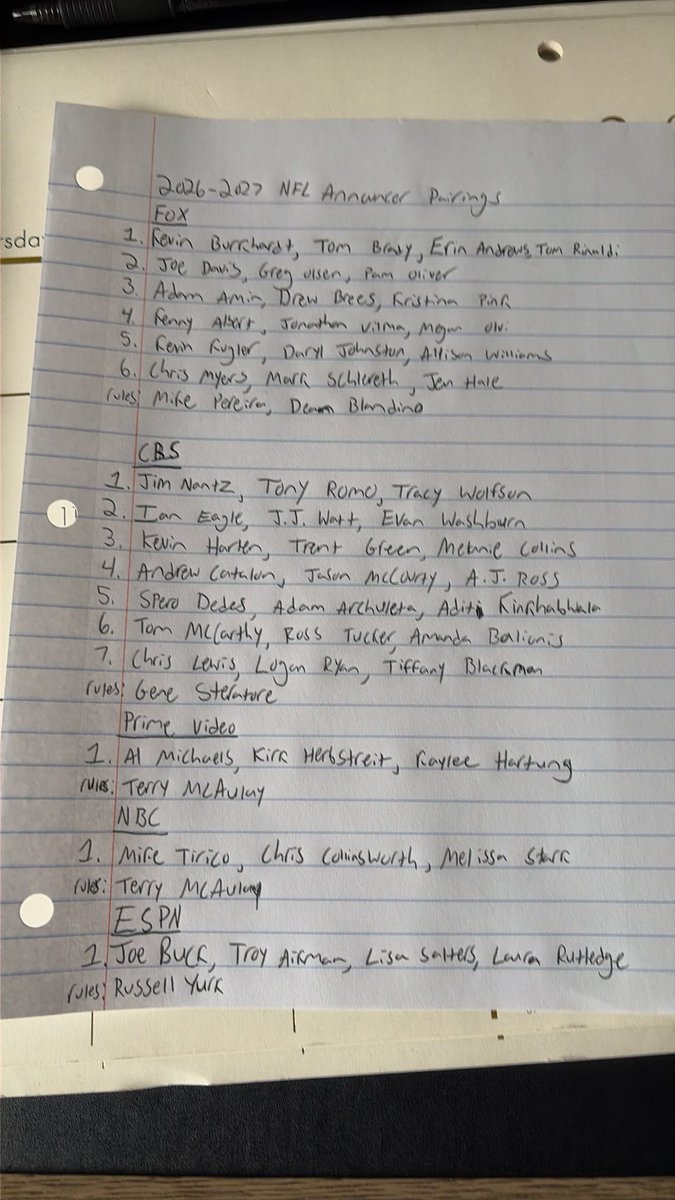 rsda
2026-2027 NFL Annuncer Pairings
FOX
1. Kevin Burkhardt, Tom Brady, Erin Andrews, Tom Rinaldi
2. Joe Davis, Greg Olsen, Pam Oliver
3. Adam Amin, Drew Brees, Kristina Pink
4. Kenny Albert, Jonathan Vilma, Megan Olvi
5. Kevin Kugler, Daryl Johnston, Allison Williams
6. Chris Myers, Mark Schlereth, Jen Hale
rules: Mike Pereira, Dean Blandino
CBS
1. Jim Nantz, Tony Romo, Tracy Wolfson
2. Ian Eagle, J.J. Watt, Evan Washburn
3. Kevin Harlen, Trent Green, Melanie Collins
4. Andrew Catalon, Jason McCourty, A.J. Ross
5. Spero Dedes, Adam Archuleta, Aditi Kinkhabwala
6. Tom McCarthy, Ross Tucker, Amanda Balionis
7. Chris Lewis, Logan Ryan, Tiffany Blackmon
rules: Gene Steratore
Prime Video
1. Al Michaels, Kirk Herbstreit, Kaylee Hartung
rules: Terry McAulay
NBC
1. Mike Tirico, Chris Collinsworth, Melissa Stark
rules: Terry McAulay
ESPN
1. Joe Buck, Troy Aikman, Lisa Salters, Laura Rutledge
rules: Russell Yurk